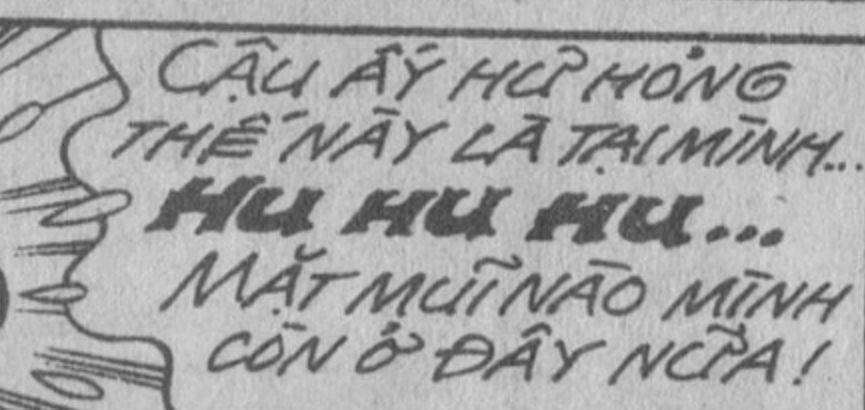 CẬU ẤY HƯ HỎNG
THẾ NÀY LÀ TẠI MÌNH...
HU HU HU...
MẶT MŨI NÀO MÌNH
CÒN Ở ĐÂY NỮA!